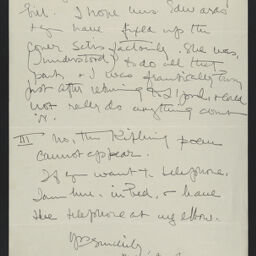 bit. I hope Mrs Edwards
+ you have fixed up the
cover satisfactorily. She was,
I understood, to do all that
part, + I was frantically busy
just after returning to England, + could
not really do anything about
it.
III No, the Kipling poem
cannot appear.
If you want to telephone,
I am here in bed, + have
the telephone at my elbow.
Yrs sincerely